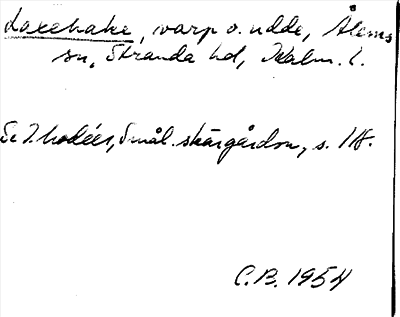 Laxehake, varp o. udde, Ålems
sn, Stranda hd, Kalm. l.
Se I. Modéer, Smål. skärgårdsn, s. 118.
C.B. 1954